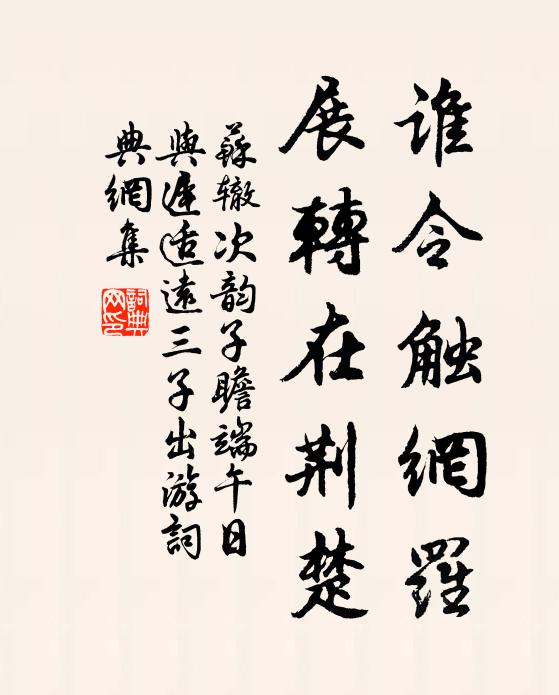 谁令触網羅
展轉在荆楚
蘇辙次韵子瞻端午日
與遲适遠三子出游詞
典網集
詞典网印